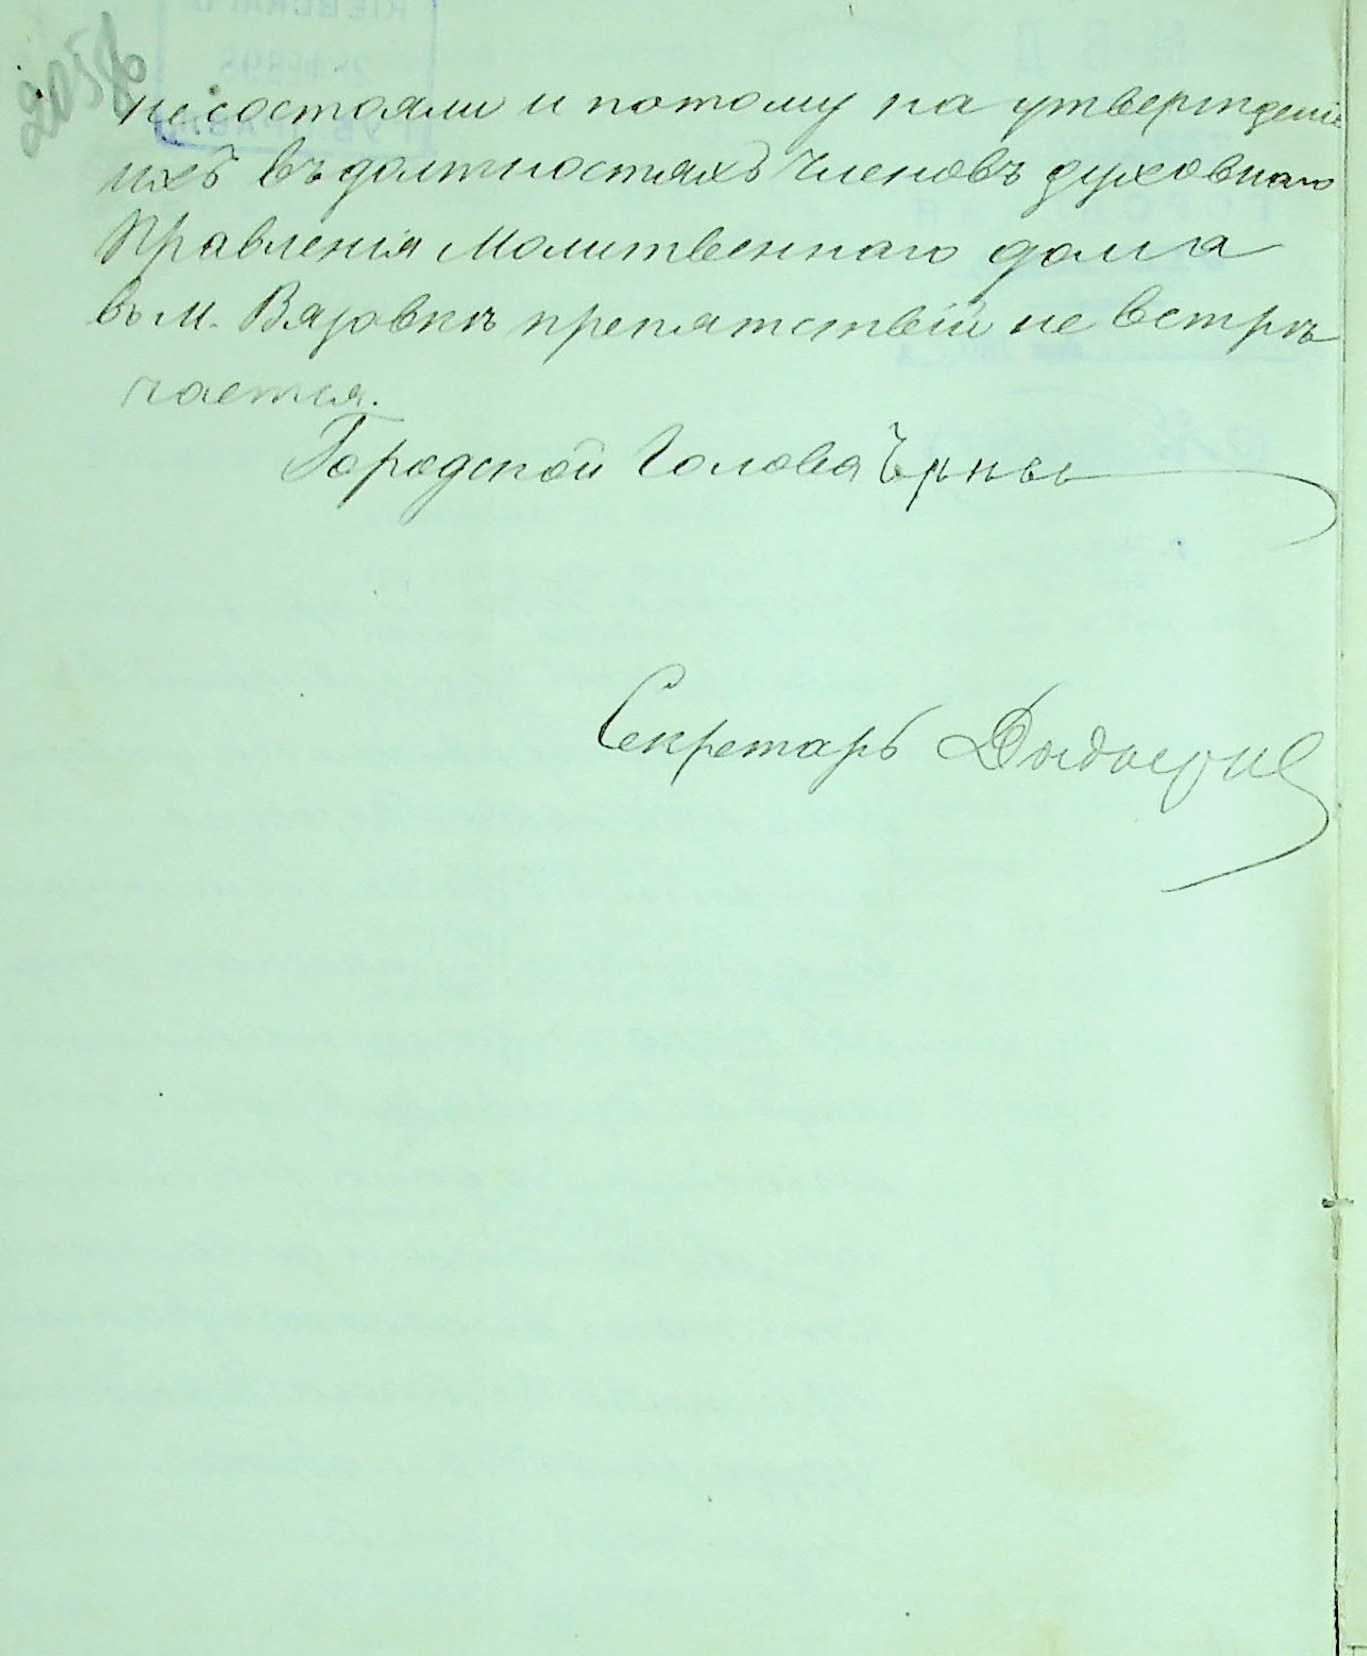 205об
не состояли и потому на утвержденіе
ихъ въ должностяхъ членовъ духовнаго
Правленія Молитвеннаго дома
въ м. Вязовкѣ препятствій не встрѣ
чается.
Городской Голова
Секретарь